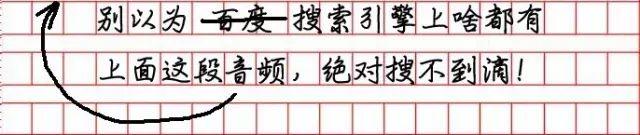 别以为百度搜索引擎上啥都有
上面这段音频，绝对搜不到滴！